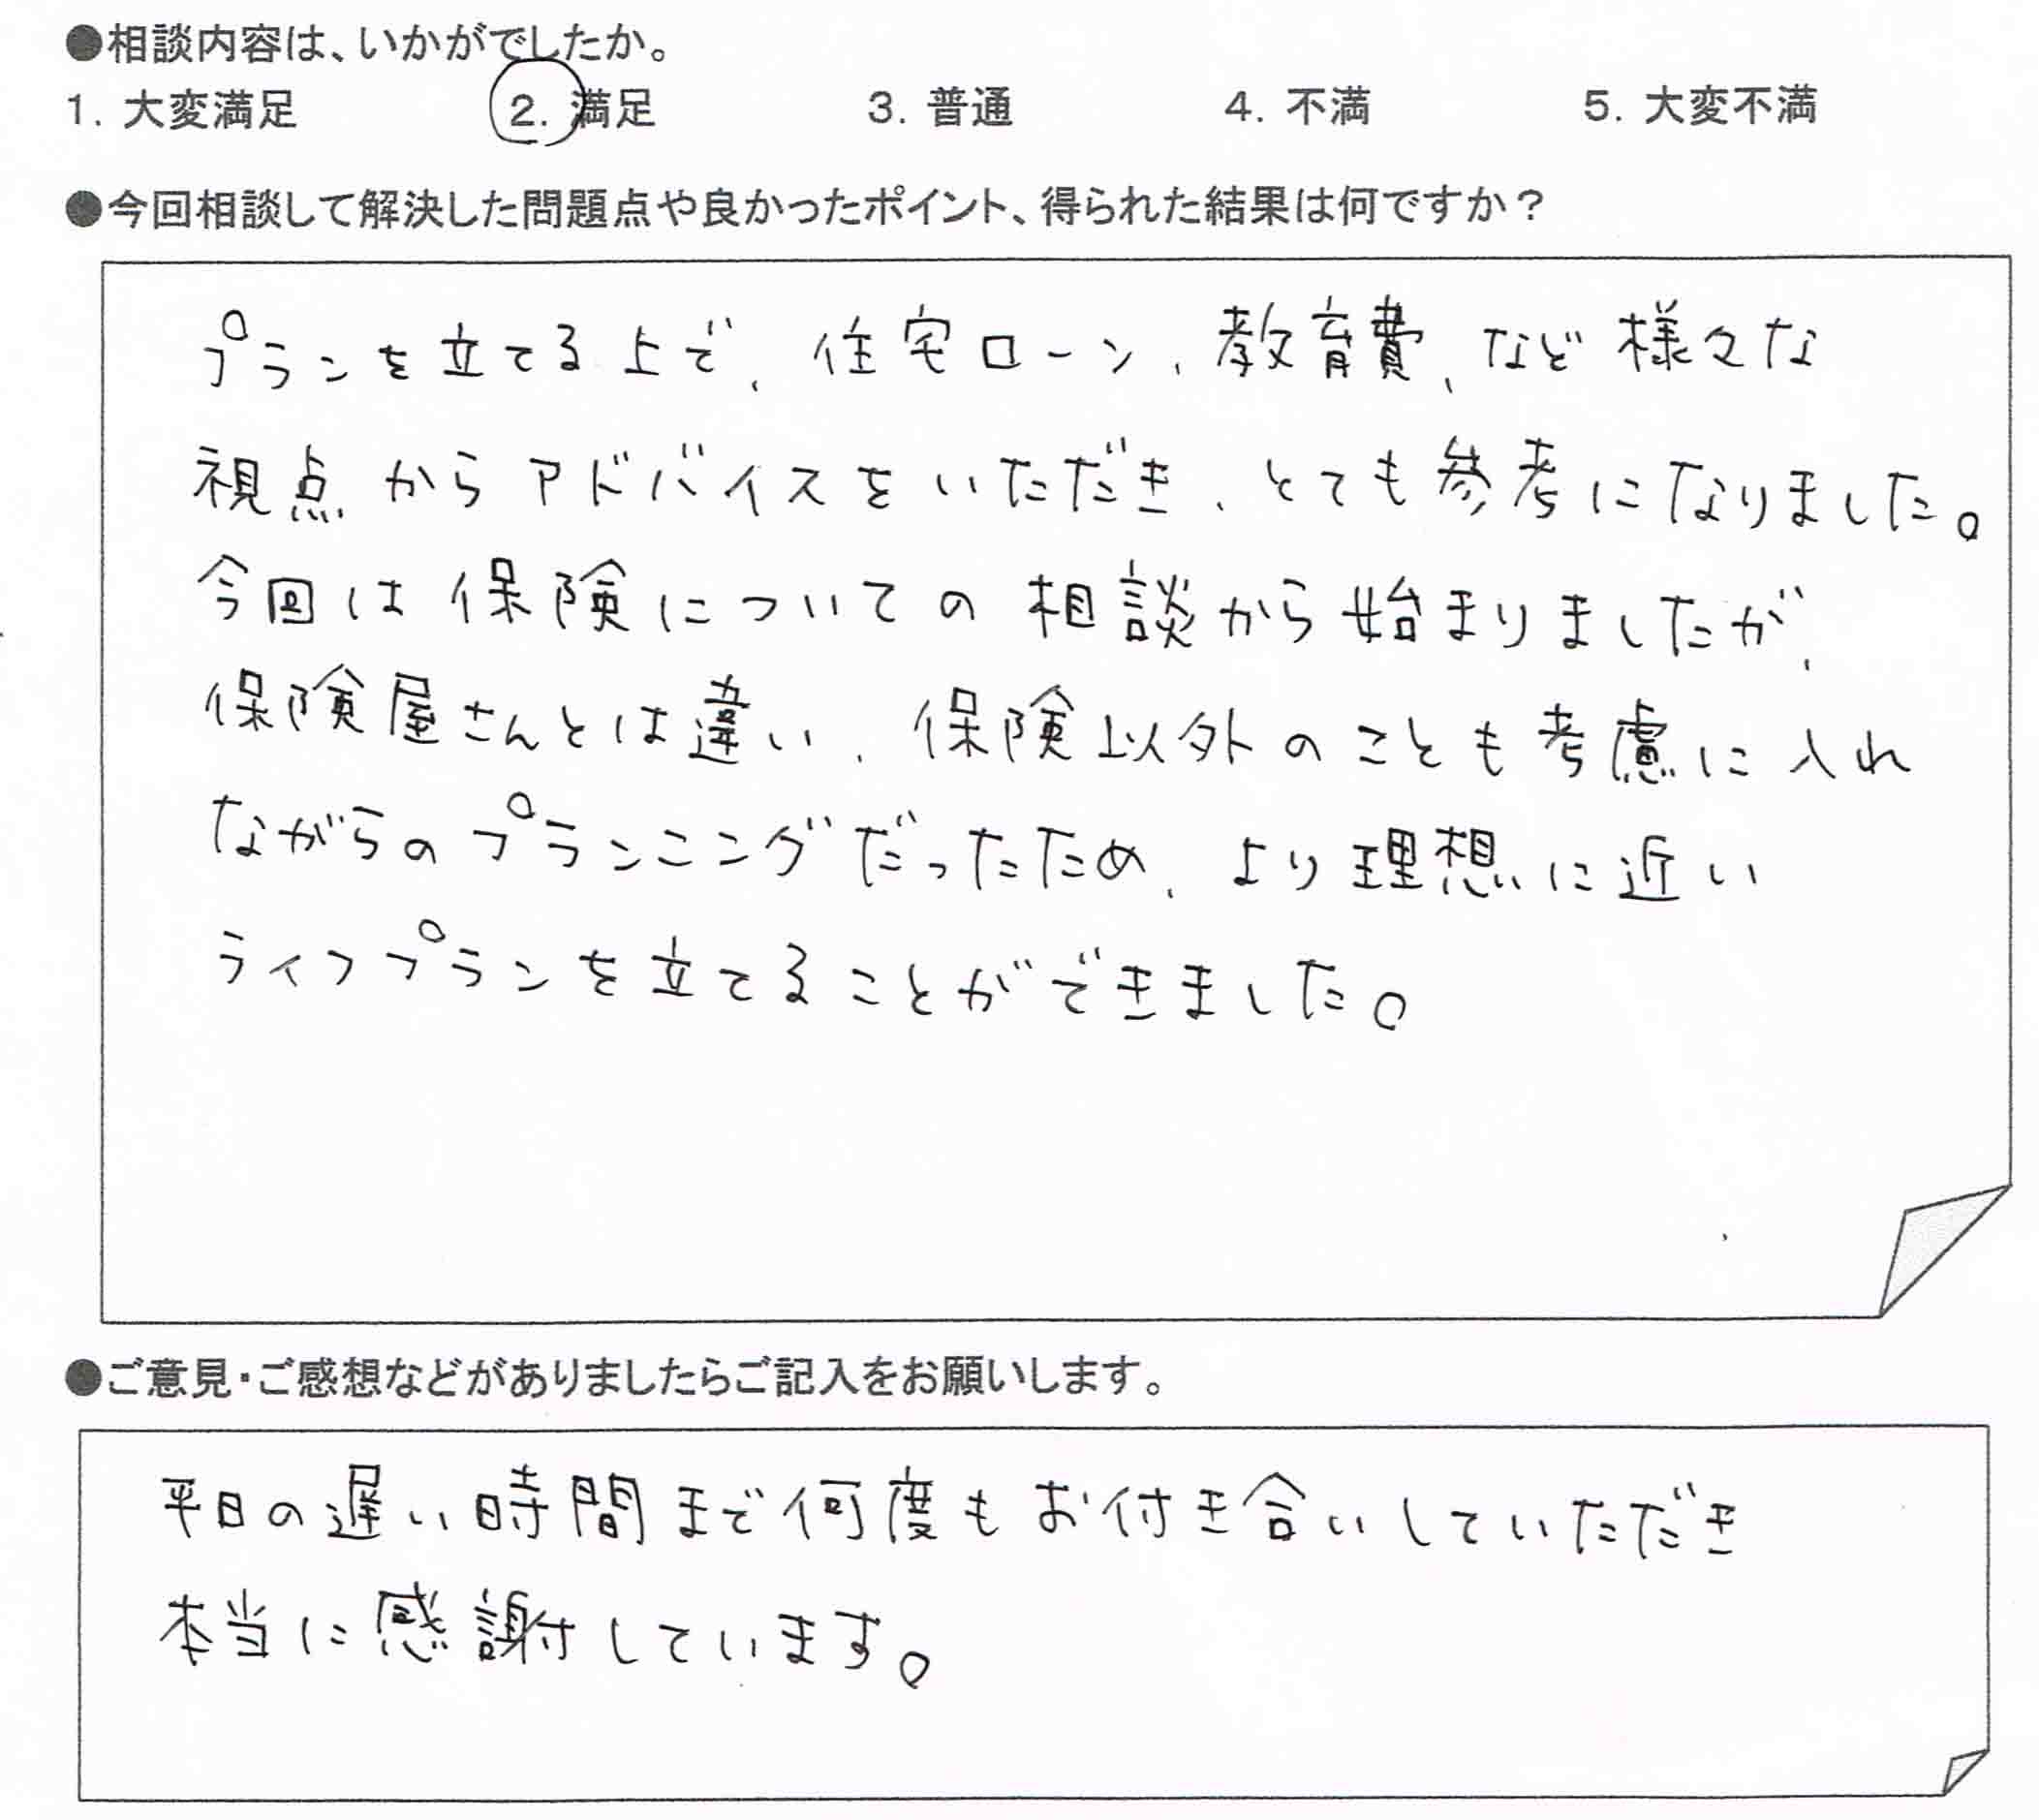 ●相談内容は、いかがでしたか。
1. 大変満足 2. 満足 3. 普通 4. 不満 5. 大変不満
●今回相談して解決した問題点や良かったポイント、得られた結果は何ですか？
プランを立てる上で、住宅ローン、教育費、など様々な
視点からアドバイスをいただき、とても参考になりました。
今回は保険についての相談から始まりましたが、
保険屋さんとは違い、保険以外のことも考慮に入れ
ながらのプランニングだったため、より理想に近い
ライフプランを立てることができました。
●ご意見・ご感想などがありましたらご記入をお願いします。
平日の遅い時間まで何度もお付き合いしていただき
本当に感謝しています。